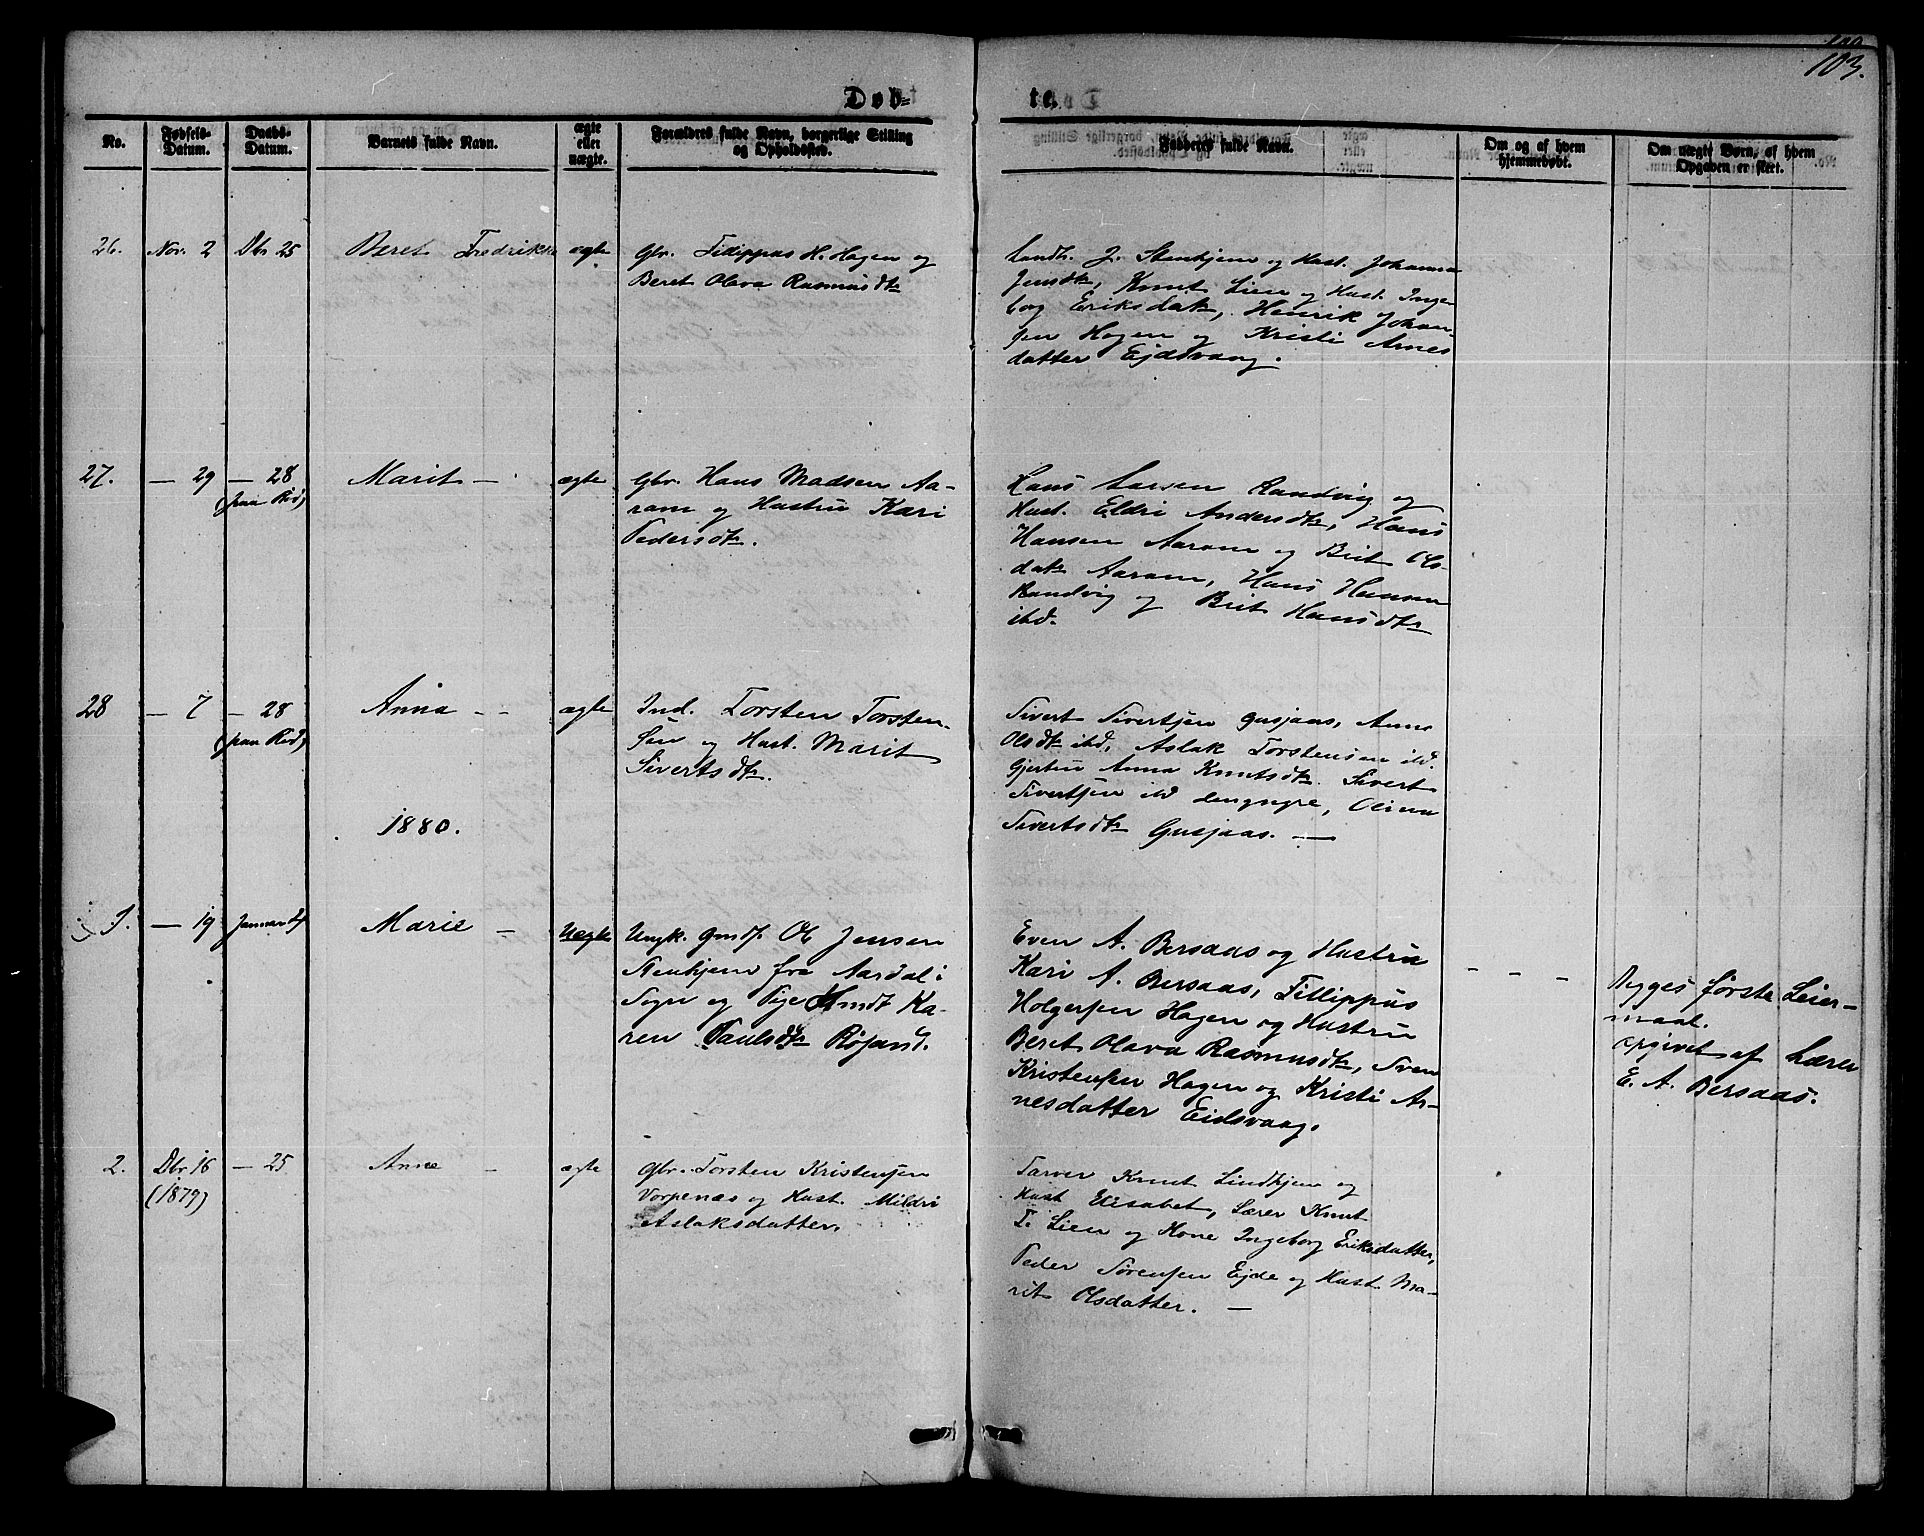 103.
Døb=
te.
No.
Fødsels-
Datum.
Daabs-
Datum.
Barnets fulde Navn.
ægte
eller
uægte.
Forældres fulde Navn, borgerlige Stilling
og Opholdssted.
Fadderes fulde Navn.
Om og af hvem
hjemmedøbt.
Om uægte Børn, af hvem
Opgaven er skeet.
26. Nov. 2 Dbr 25 Beret Fredrikke ægte
Gbr. Filippus H. Hagen og
Beret Olava Rasmusdtr
Landh. J. Stenhjem og Hust. Johanna
Jensdtr, Knut Lien og Hust. Inge-
borg Eriksdatr, Henrik Johan-
sen Hagen og Kristi Arnes
datter Ejdsvaag.
27. — 29 — 28 Marit — ægte
(paa Rød)
Gbr. Hans Madsen Aa-
ram og Hustru Kari
Pedersdtr.
Hans Larsen Randvig og
Hust. Eldri Andersdtr, Hans
Hansen Aaram og Brit Ols-
datr Aaram, Hans Hansen
Randvig og Brit Hansdtr
ibd.
28 — 7 — 28 Anna — ægte
(paa Rød)
Ind. Torsten Torsten-
sen og Hust. Marit
Sivertsdtr.
Sivert Sivertsen Gusjaas, Anne
Olsdtr ibd, Aslak Torstensen ibd.
Gjertru Anna Knutsdtr. Sivert
Sivertsen ibd den yngre, Olina
Sivertsdtr Gusjaas. —
1880.
1. — 19 Januar 4 Marie — Uægte
Ungk. Gmdss. Ole Jensen
Stenhjem fra Aardal i
Sogn og Pige Gmdt Ka-
ren Paulsdtr Røjand.
Even A. Bersaas og Hustru
Kari A. Bersaas, Fillippus
Holgersen Hagen og Hustru
Beret Olava Rasmusdtr, Sven
Kristensen Hagen og Kristi Ar-
nesdatter Eidsvaag.
— — —
Begges første Leier-
maal.
opgivet af Lærer
E. A. Bersaas.
2. Dbr 16 — 25 Anne — ægte
(1879)
Gbr. Torsten Kristensen
Vorpenæs og Hust. Mildri
Aslaksdatter.
Farver Knut Lindhjem og
Hust Elisabet, Lærer Knut
T. Lien og Kone Ingeborg Eriksdatter,
Peder Sørensen Ejde og Hust Ma-
rit Olsdatter. —